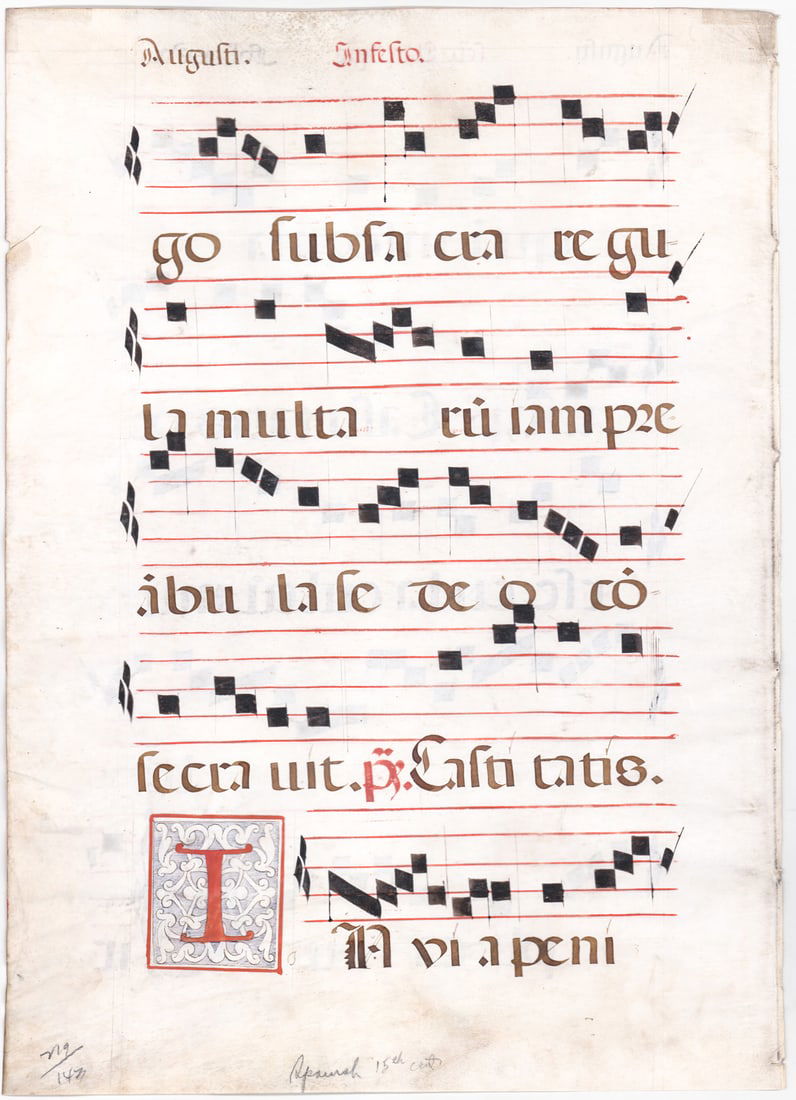 Augusti. Infesto.
go subsa cra regu
la multa rū iam pre
ābu la se de o cō
secra uit. ps. Casti tatis.
IN vi a peni
Spanish 15th cent